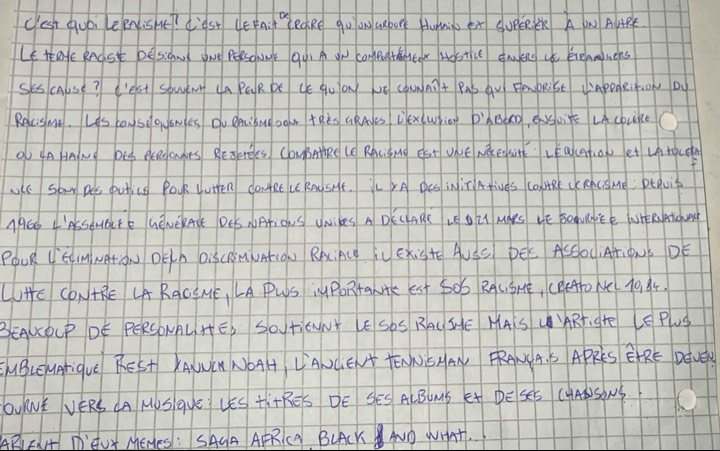 C'est quoi LE RALISME? C'EST LE FAIT DE CROIRE qu'UN GROUPE HUMAIN EST SUPERIER À UN AUTRE.
LE TERME RACISTE DÉSIGNE UNE PERSONNE QUI A UN COMPORTEMENT HOSTILE ENVERS LES ÉTRANGERS
SES CAUSE? C'EST SOUVENT LA PEUR DE CE QU'ON NE CONNAÎT PAS QUI FAVORISE L'APPARITION DU
RACISME. LES CONSÉQUENCES DU RACISME SONT TRÈS GRAVES L'EXCLUSION D'ABORD, ENSUITE LA COLÈRE
OU LA HAINE DES PERSONNES REJETÉES. COMBATTRE LE RACISME EST UNE NÉCESSITÉ L'ÉDUCATION ET LA TOLERA
NCE SONT DES OUTILS POUR LUTTER CONTRE LE RACISME. IL Y A DES INITIATIVES CONTRE LE RACISME: DEPUIS
1966 L'ASSEMBLÉE GÉNÉRALE DES NATIONS UNIES A DÉCLARÉ LE 21 MARS LE JOURNÉE INTERNATIONALE
POUR L'ÉLIMINATION DE LA DISCRIMINATION RACIALE IL EXISTE AUSSI DES ASSOCIATIONS DE
LUTTE CONTRE LA RACISME, LA PLUS IMPORTANTE EST SOS RACISME, CREATO NEL 1984.
BEAUCOUP DE PERSONALITÉS SOUTIENNT LE SOS RACISME MAIS L'ARTISTE LE PLUS
EMBLEMATIQUE REST YANNICK NOAH, L'ANCIENT TENNISMAN FRANÇAIS APRÈS ÊTRE DEVENU
TOURNÉ VERS LA MUSIQUE: LES TITRES DE SES ALBUMS ET DE SES CHANSONS
PARLENT D'EUX MEMES: SAGA AFRICA, BLACK AND WHAT...